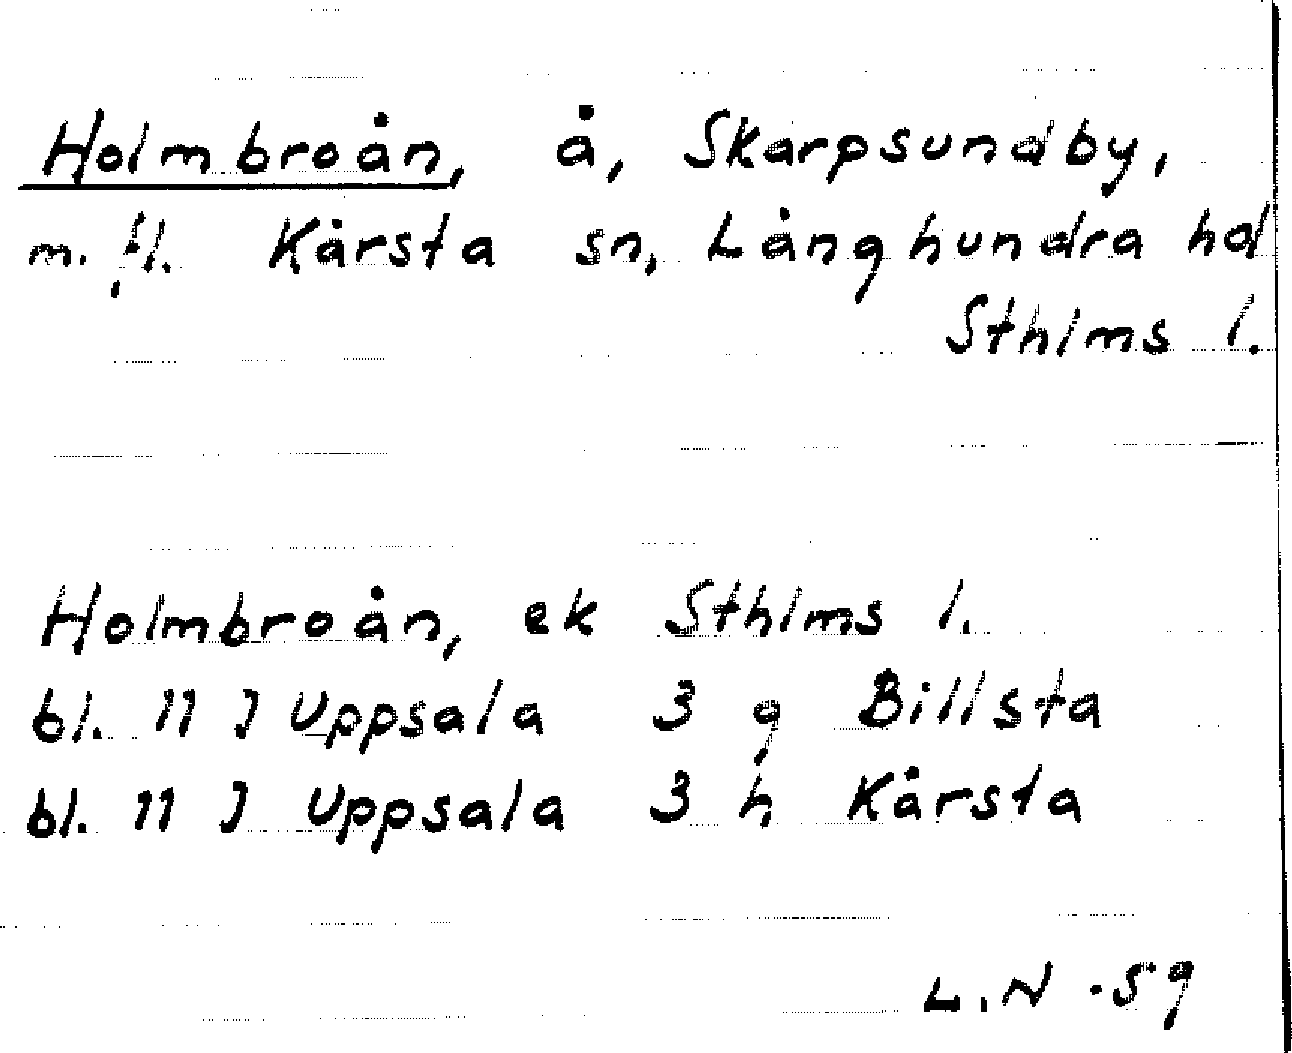 Holmbroån, å, Skarpsundby,
m. fl. Kårsta sn, Långhundra hd
Sthlms l.
Holmbroån, ek Sthlms l.
bl. 11 J Uppsala 3 g Billsta
bl. 11 J Uppsala 3 h Kårsta
L.N -59